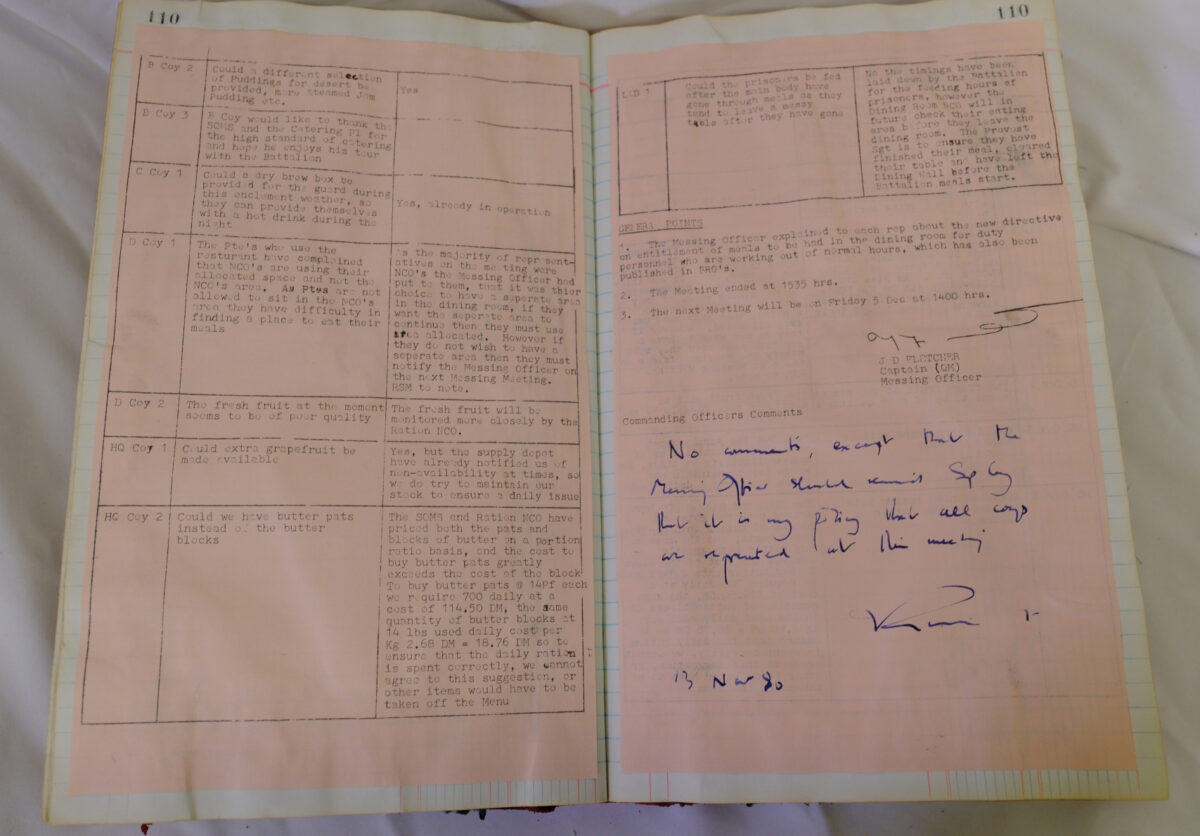 110
B Coy 2
Could a different selection
of Puddings for desert be
provided, more Steamed Jam
Pudding etc.
Yes
B Coy 3
B Coy would like to thank the
SQMS and the Catering Pl for
the high standard of catering
and hope he enjoys his tour
with the Battalion
C Coy 1
Could a dry brew box be
provided for the guard during
this enclement weather, so
they can provide themselves
with a hot drink during the
night
Yes, already in operation
D Coy 1
The Pte's who use the
resturant have complained
that NCO's are using their
allocated space and not the
NCO's area. As Ptes are not
allowed to sit in the NCO's
area they have difficulty in
finding a place to eat their
meals
As the majority of repr sent-
atives on the meeting were
NCO's the Messing Officer had
put to them, that it was thier
choice to have a seperate area
in the dining room, if they
want the seperate area to
continue then they must use
area allocated. However if
they do not wish to have a
seperate area then they must
notify the Messing Officer on
the next Messing Meeting.
RSM to note.
D Coy 2
The fresh fruit at the moment
seems to be of poor quality
The fresh fruit will be
monitored more closely by the
Ration NCO.
HQ Coy 1
Could extra grapefruit be
made available
Yes, but the supply depot
have already notified us of
non-availability at times, so
we do try to maintain our
stock to ensure a daily issue
HQ Coy 2
Could we have butter pats
instead of the butter
blocks
The SQMS and Ration NCO have
priced both the pats and
blocks of butter on a portion
ratio basis, and the cost to
buy butter pats greatly
exceeds the cost of the block
To buy butter pats @ 14Pf each
we require 700 daily at a
cost of 114.50 DM, the same
quantity of butter blocks at
14 lbs used daily cost per
Kg 2.68 DM = 18.76 DM so to
ensure that the daily ration
is spent correctly, we cannot
agree to this suggestion, or
other items would have to be
taken off the Menu
110
LAD 1
Could the prisoners be fed
after the main body have
gone through meals as they
tend to leave a messy
table after they have gone
No the timings have been
laid down by the Battalion
for the feeding hours of
prisoners, however the
Dining Room NCO will in
future check their eating
area before they leave the
dining room. The Provost
Sgt is to ensure they have
finished their meal, cleared
their table and have left the
Dining Hall before the
Battalion meals start.
GENERAL POINTS
1. The Messing Officer explained to each rep about the new directive
on entitlement of meals to be had in the dining room for duty
personnel who are working out of normal hours, which has also been
published in BRO's.
2. The Meeting ended at 1535 hrs.
3. The next Meeting will be on Friday 5 Dec at 1400 hrs.
J D FLETCHER
Captain (QM)
Messing Officer
Commanding Officers Comments
No comments, except that the
Messing Officer should remind Sp Coy
that it is my policy that all coys
are represented at this meeting
13 Nov 80